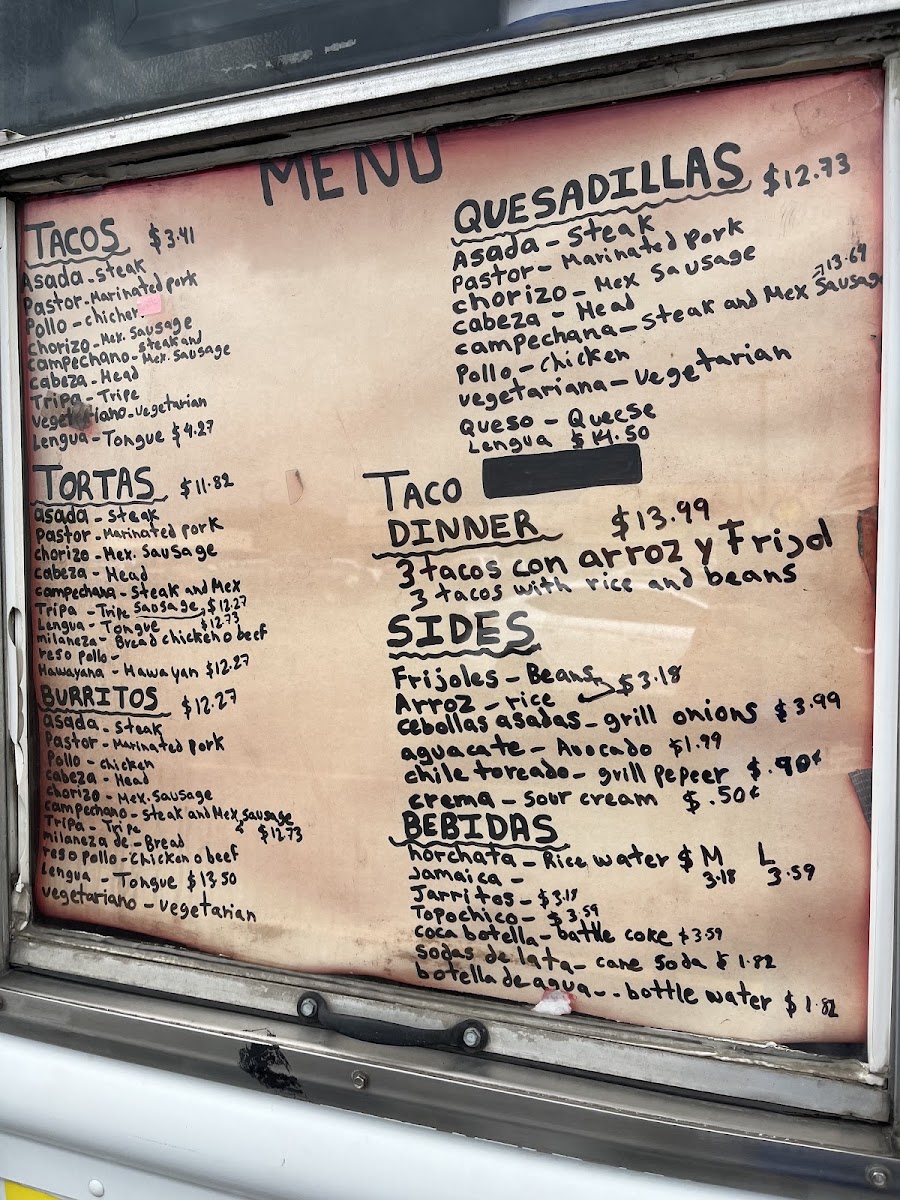 MENU
TACOS $3.41
Asada - steak
Pastor - Marinated pork
Pollo - chicken
chorizo - Mex. Sausage
campechano - steak and
Mex. Sausage
cabeza - Head
Tripa - Tripe
vegetariano - vegetarian
Lengua - Tongue $4.27
TORTAS $11.82
asada - steak
Pastor - Marinated pork
chorizo - Mex. Sausage
cabeza - Head
campechana - Steak and Mex
Sausage, $12.27
Tripa - Tripe
Lengua - Tongue $12.73
milaneza - Bread chicken o beef
reso pollo -
Hawayana - Hawayan $12.27
BURRITOS $12.27
asada - steak
Pastor - Marinated pork
Pollo - chicken
cabeza - Head
chorizo - Mex. Sausage
campechano - Steak and Mex sausage
Tripa - Tripe $12.73
milaneza de - Bread
reso pollo - chicken o beef
Lengua - Tongue $13.50
vegetariano - vegetarian
QUESADILLAS $12.73
Asada - steak
Pastor - Marinated pork
chorizo - Mex Sausage
cabeza - Head
campechana - steak and Mex Sausage 13.69
Pollo - chicken
vegetariana - vegetarian
Queso - Queese
Lengua $14.50
TACO
DINNER $13.99
3 tacos con arroz y Frijol
3 tacos with rice and beans
SIDES
Frijoles - Beans
Arroz - rice $3.18
cebollas asadas - grill onions $3.99
aguacate - Avocado $1.99
chile toreado - grill pepeer $.90¢
crema - sour cream $.50¢
BEBIDAS
horchata - Rice water $ M L
Jamaica - 3.18 3.59
Jarritos - $3.18
Topochico - $3.59
coca botella - battle coke $3.59
sodas de lata - cane soda $1.82
botella de agua - - bottle water $1.82